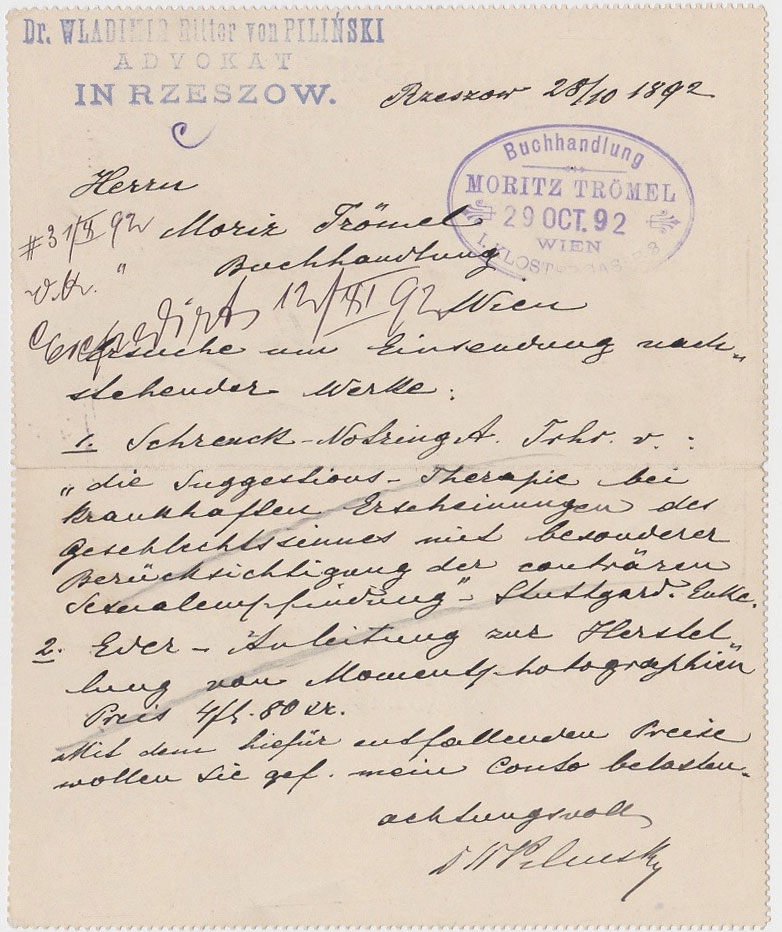 Dr. WLADIMIR Ritter von PILIŃSKI
ADVOKAT
IN RZESZOW.
Rzeszow 28/10 1892
Buchhandlung
MORITZ TRÖMEL
29 OCT. 92
WIEN
Herrn
Moriz Trömel
Buchhandlung
Wien
Expedirt 12/XI 92
Ersuche um Einsendung nach-
stehender Werke:
1. Schrenck-Notzing A. Frhr. v.:
„die Suggestions-Therapie bei
krankhaften Erscheinungen des
Geschlechtssinnes mit besonderer
Berücksichtigung der conträren
Sexualempfindung" - Stuttgard. Enke.
2. Eder - Anleitung zur Herstel
lung von Momentphotographien
Preis 4 fl. 80 kr.
Mit dem hiefür entfallenden Preise
wollen Sie gef. mein Conto belasten.
achtungsvoll